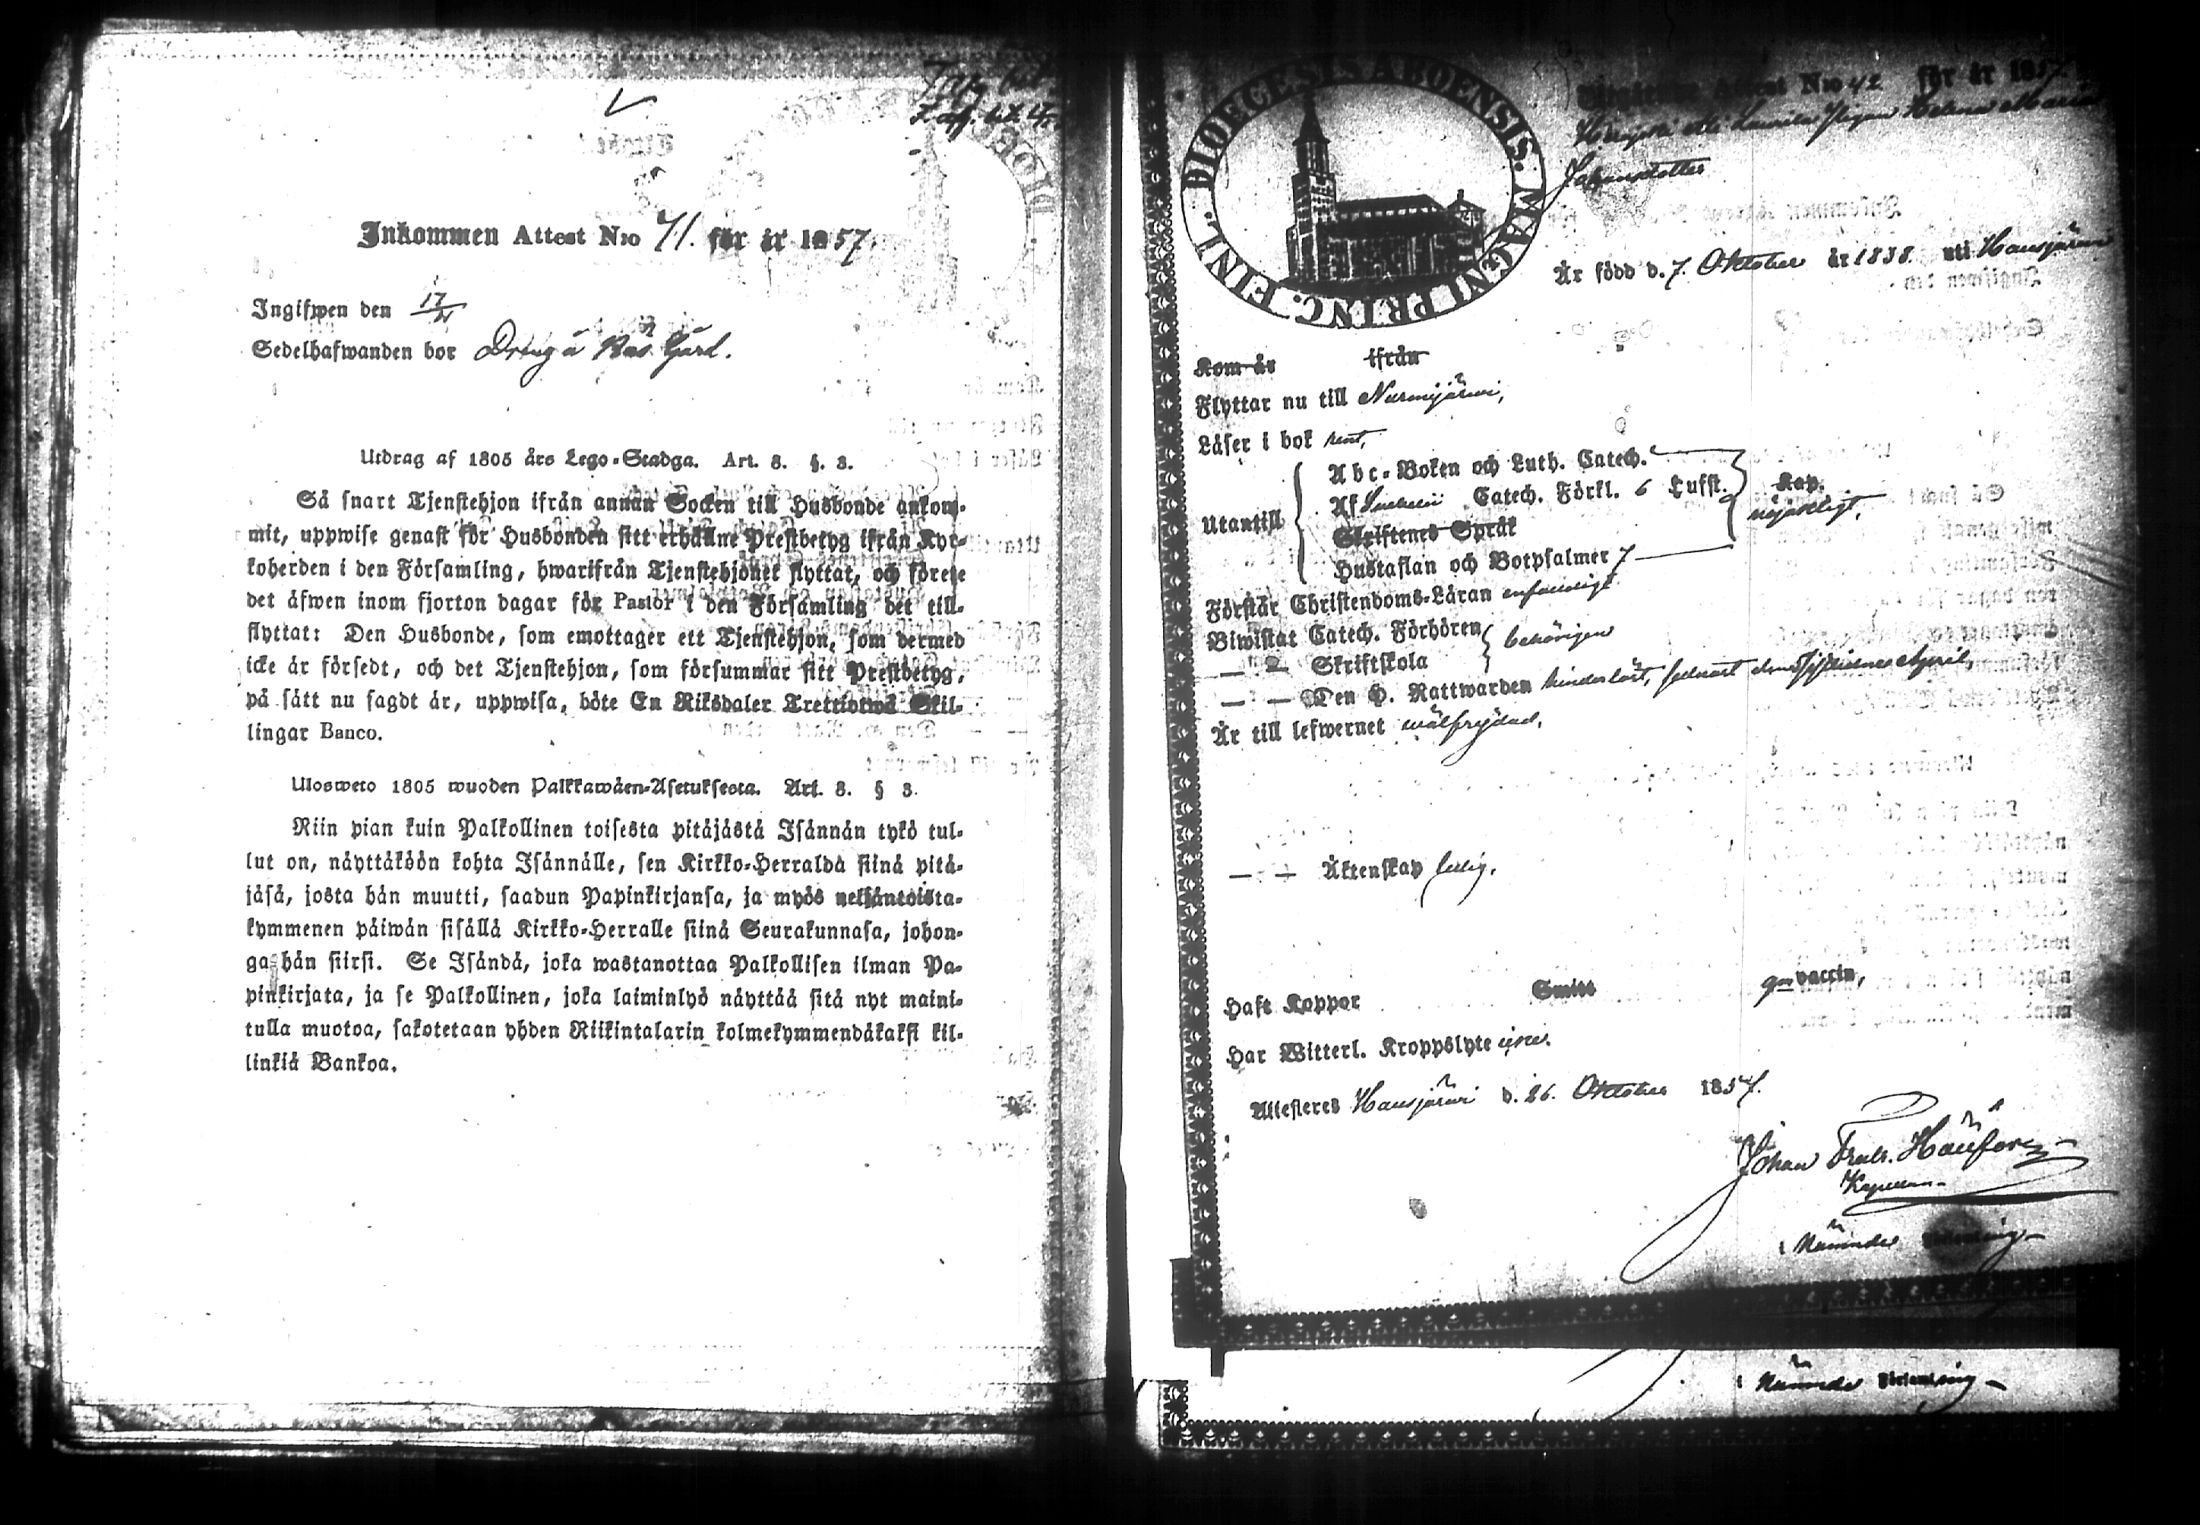 Inkommen Attest N:o 71. för år 1857.
Ingifwen den 17/
Sedelhafwanden bor Dräng å Gård.
Utdrag af 1805 års Lego-Stadga. Art. 8. §. 3.
Så snart Tjenstehjon ifrån annan Socken till Husbonde ankom-
mit, uppwise genast för Husbonden sitt erhållne Prestbetyg ifrån Kyr-
koherden i den Församling, hwarifrån Tjenstehjonet flyttat, och förete
det äfwen inom fjorton dagar för Pastor i den Församling det till-
flyttat: Den Husbonde, som emottager ett Tjenstehjon, som dermed
icke är försedt, och det Tjenstehjon, som försummar sitt Prestbetyg,
på sätt nu sagdt är, uppwisa, böte En Riksdaler Trettiotwå Skil-
lingar Banco.
Ulosweto 1805 wuoden Palkkawäen-Asetuksesta. Art. 8. § 3.
Niin pian kuin Palkollinen toisesta pitäjästä Isännän tykö tul-
lut on, näyttäköön kohta Isännälle, sen Kirkko-Herralda siinä pitä-
jäsä, josta hän muutti, saadun Papinkirjansa, ja myös neljäntoista-
kymmenen päiwän sisällä Kirkko-Herralle siinä Seurakunnasa, johon-
ga hän siirsi. Se Isändä, joka wastanottaa Palkollisen ilman Pa-
pinkirjata, ja se Palkollinen, joka laiminlyö näyttää sitä nyt maini-
tulla muotoa, sakotetaan yhden Riikintalarin kolmekymmendäkaksi kil-
linkiä Bankoa.
DIOECESIS ABOENSIS. MAGNI PRINC. FINL.
Attest N:o 42 för år 1857
Pigan Helena Maria
Johansdotter
Är född d. 7. Oktober år 1838 uti Hausjärwi
Kom år ifrån
Flyttar nu till Nurmijärwi,
Läser i bok rent,
Utantill
Abc-Boken och Luth. Catech.
Af Catech. Förkl. 6 Lufft.
Skriftenes Språk
Hustaflan och Botpsalmer 7
Kap.
nöjaktligt,
Förstår Christendoms-Läran enfaldigt
Biwistat Catech. Förhören
— — Skriftskola
behörigen
— — Den H. Nattwarden hinderlöst, sednast den April,
Är till lefwernet wälfrejdad,
— — Äktenskap ledig.
Haft Koppor Smitt gm vaccin,
Har Witterl. Kroppslyte
Attesteras Hausjärwi d. 26. Oktober 1857.
Johan Fredr.
Kapellan
i Nämnde Församling
i Nämnde Församling